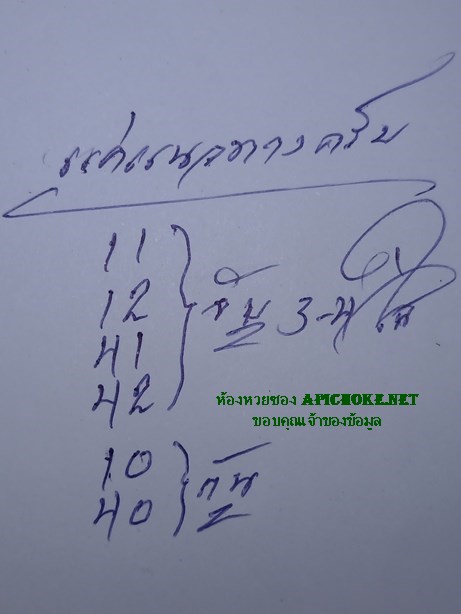 แค่แนวทางครับ
11
12
41
42
3-4
ห้องหวยซอง APICHOKE.NET
ขอบคุณเจ้าของข้อมูล
10
40
กัน